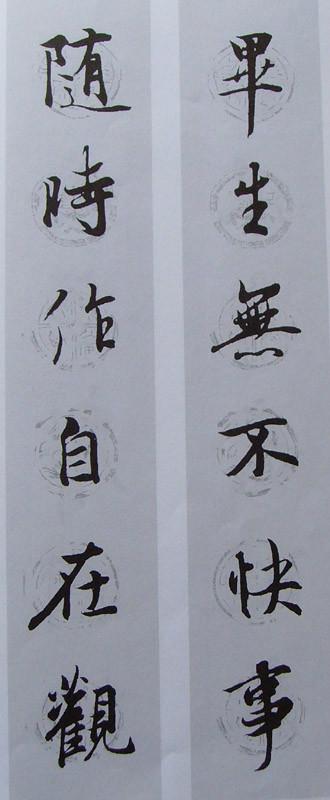 畢生無不快事
隨時作自在觀